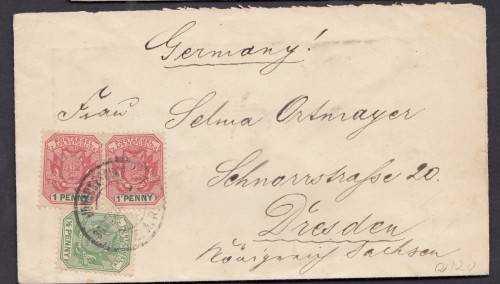 Germany!
Frau Selma Ortmayer
Schnorrstraße 20.
Dresden
Königreich Sachsen
1 PENNY 1 PENNY